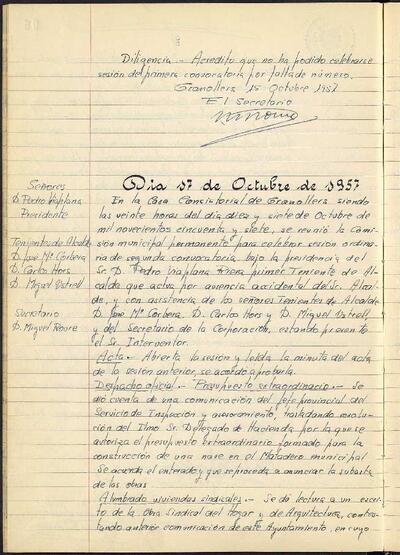 Diligencia - Acredito que no ha podido celebrarse
sesión de primera convocatoria por falta de número.
Granollers 15 Octubre 1957
El Secretario
Señores
D. Pedro Viaplana
Presidente
Tenientes de Alcalde
D. José Mª Corbera
D. Carlos Hors
D. Miguel Ystrell
Secretario
D. Miguel Roure
Dia 17 de Octubre de 1957
En la Casa Consistorial de Granollers siendo
las veinte horas del día diez y siete de Octubre de
mil novecientos cincuenta y siete, se reunió la Comi-
sión municipal permanente para celebrar sesión ordina-
ria de segunda convocatoria, bajo la presidencia del
Sr. D. Pedro Viaplana Riera primer Teniente de Al-
calde que actua por ausencia accidental del Sr. Alcal-
de, y con asistencia de los señores Tenientes de Alcalde
D. José Mª Corbera, D. Carlos Hors y D. Miguel Ystrell,
y del Secretario de la Corporación, estando presente
el Sr. Interventor.
Acta.- Abierta la sesión y leída la minuta del acta
de la sesión anterior, se acordó aprobarla.
Despacho oficial - Presupuesto extraordinario.- Se
dió cuenta de una comunicación del Jefe provincial del
Servicio de Inspección y asesoramiento, trasladando resolu-
ción del Ilmo Sr. Delegado de Hacienda por la que se
autoriza el presupuesto extraordinario formado para la
construcción de una nave en el Matadero municipal
Se acuerda el enterado y que se proceda a anunciar la subasta
de las obras
Alumbrado viviendas sindicales.- Se dá lectura a un escri-
to de la Obra Sindical del Hogar y de Arquitectura, contes-
tando anterior comunicación de este Ayuntamiento, en cuyo